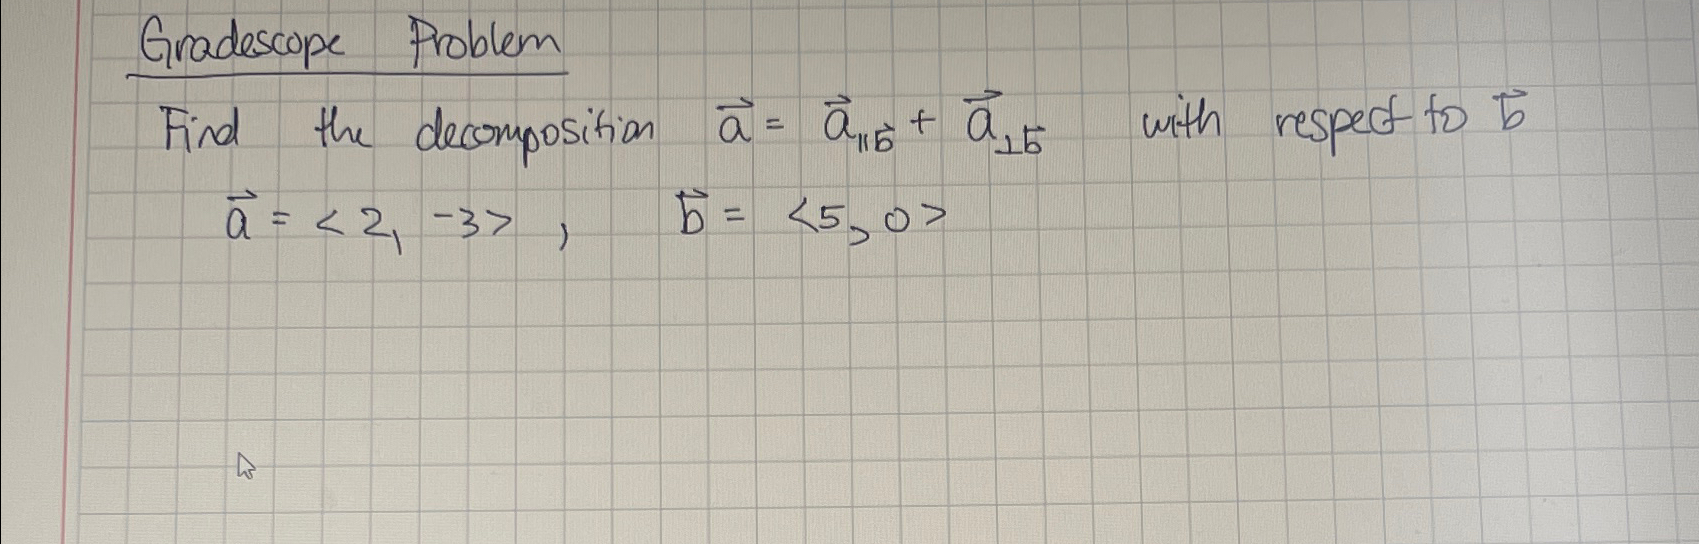 Gradescope Problem
Find the decomposition a⃗ = a⃗∥b⃗ + a⃗⊥b⃗ with respect to b⃗
a⃗ = <2, -3> , b⃗ = <5, 0>